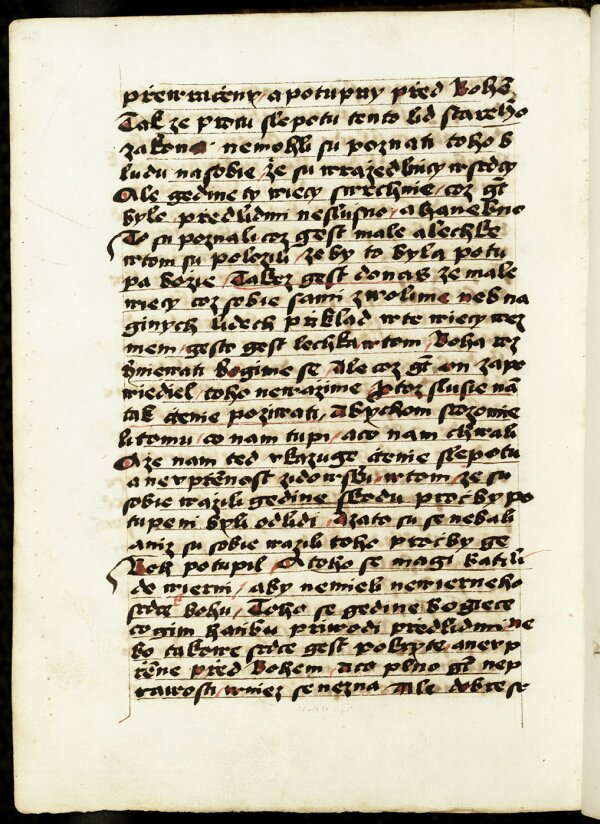 přewraceny / a potupny před Bohē
Tak ze proti slepotu tento lid stareho
zakona nemohli su poznati toho b
ludu na sobie / že su wražedlnicy w srdcy
Ale gedine ty wiecy swrchnie / coz gt
bylo před lidmi neslusno / a hanebno
To su poznali coz gest male a lechke
w tom su polozili / ze by to byla potu
pa bozie / Takez gest donas ze male
wiecy coz sobie sami zwolime neb na
ginych lidech přiklad w te wiecy wez
mem / gesto gest lechka w tom / Boha roz
hniewati bogime se / Ale coz gt on zapo
wiediel / toho newazime / Protoz slusie nā
tak ctenie poziwati / Abychom srozomie
li tomu / co nam tupi / a co nam chwali
A ze nam ted vkazuge ctenie slepotu
a neupřēnost zidowsku / w tom / ze su
sobie wazili gedine sskodu procby po
tupeni byli od lidi / A zato su se nebali
aniz su sobie wazili toho procby ge
Boh potupil / A toho se magi bati li
de wierni / aby nemieli newierneho
srdce bohu / Toho se gedine bogiece
co gim hanbu přiwodi před lidmi / ne
bo takowe srdce gest pokryte / a neup
řēne před Bohem / a co plno gt nep
rawosti / w niez se nezna / Ale dobre se